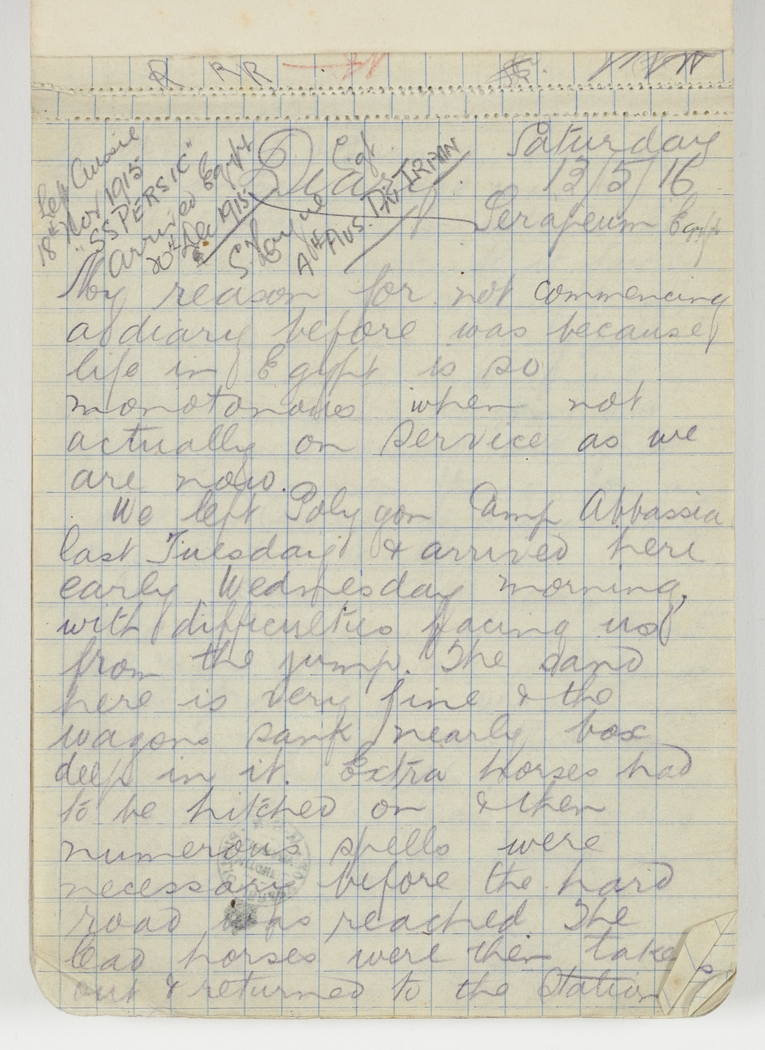 R R R
Left Aussie
18th Nov 1915
"SS PERSIC"
Arrived Egypt
20th Dec 1915
Diary
Sgt
4th Aus. Div. TRAIN
Saturday
13/5/16
Serapeum Egypt
My reason for not commencing
a diary before was because
life in Egypt is so
monotonous when not
actually on service as we
are now.
We left Polygon Camp Abbassia
last Tuesday & arrived here
early Wednesday morning,
with difficulties facing us
from the jump. The sand
here is very fine & the
wagons sank nearly box
deep in it. Extra horses had
to be hitched on & then
numerous spells were
necessary before the hard
road was reached. The
lead horses were then taken
out & returned to the Station